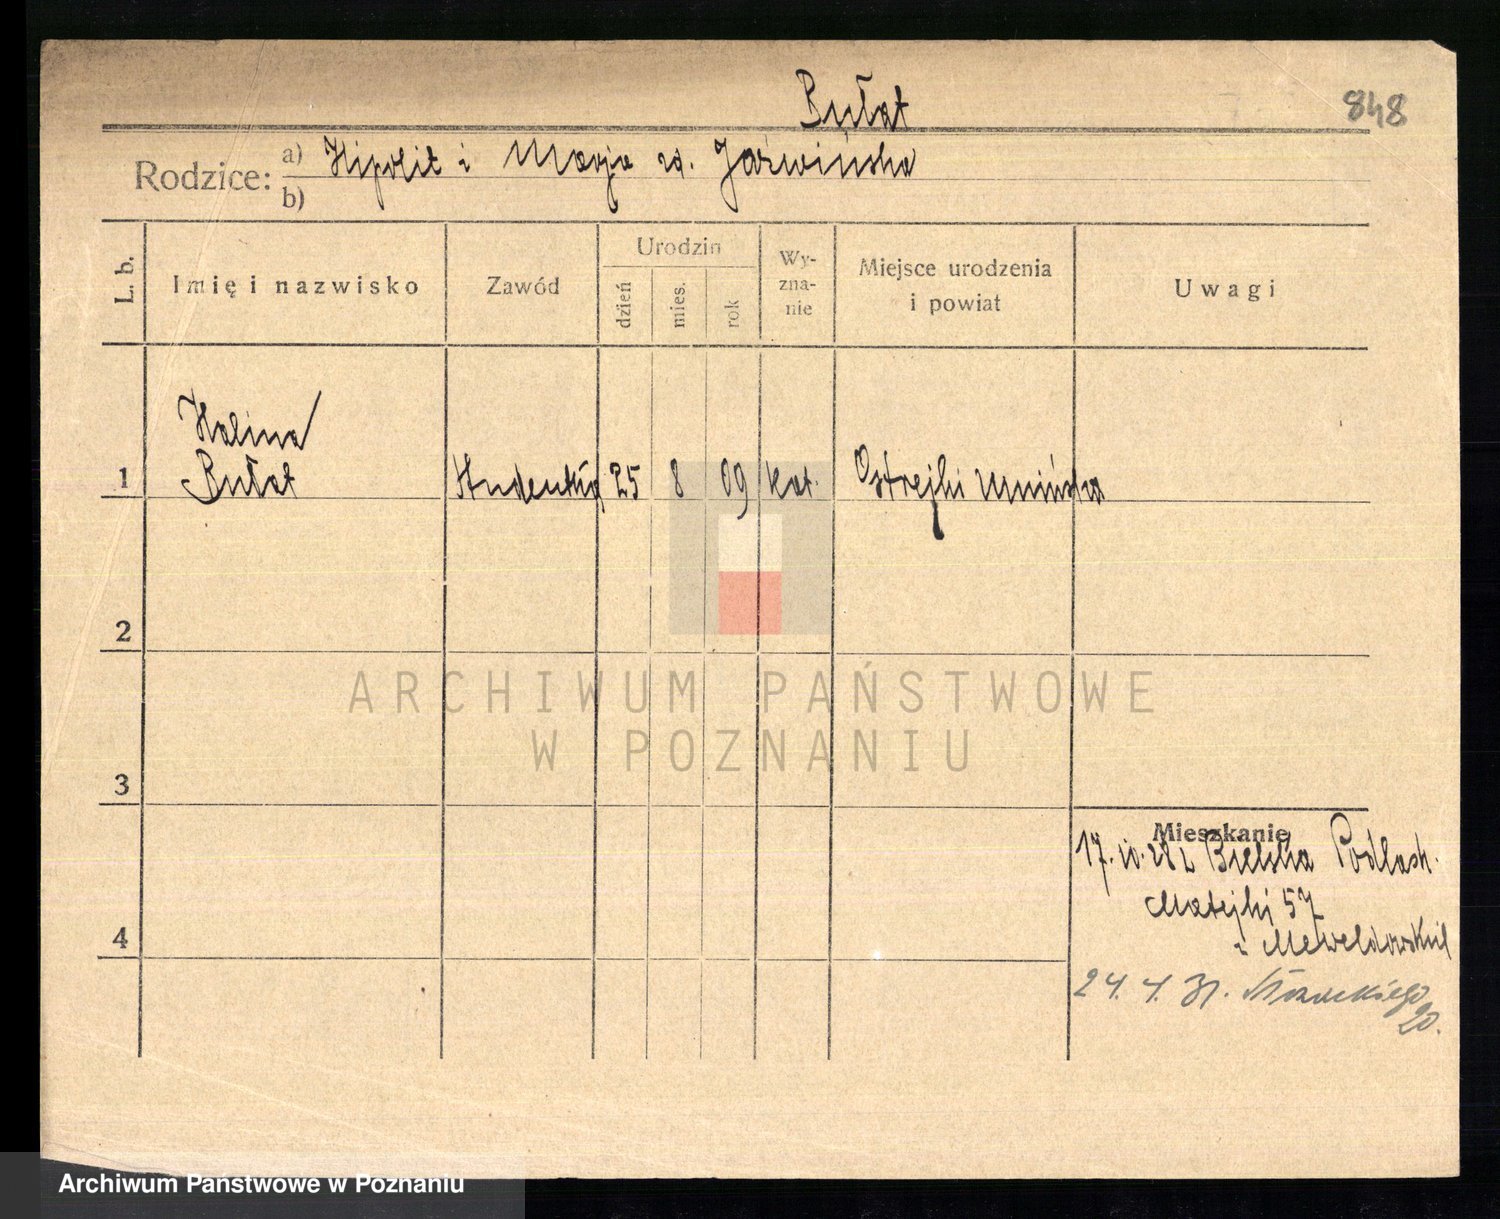 Bułat
848
Rodzice: a) Hipolit i Marja zd. Jaźwińska
b)
L. b. Imię i nazwisko Zawód Urodzin Wyznanie Miejsce urodzenia i powiat Uwagi
dzień mies. rok
Halina
1 Bułat Studentka 25 8 09 kat. Ostrejki
2
ARCHIWUM PAŃSTWOWE
W POZNANIU
3
Mieszkanie
17.10.28 z Bielska Podlask.
Matejki 57
4
24. 4. 31. Słowackiego
20.
Archiwum Państwowe w Poznaniu